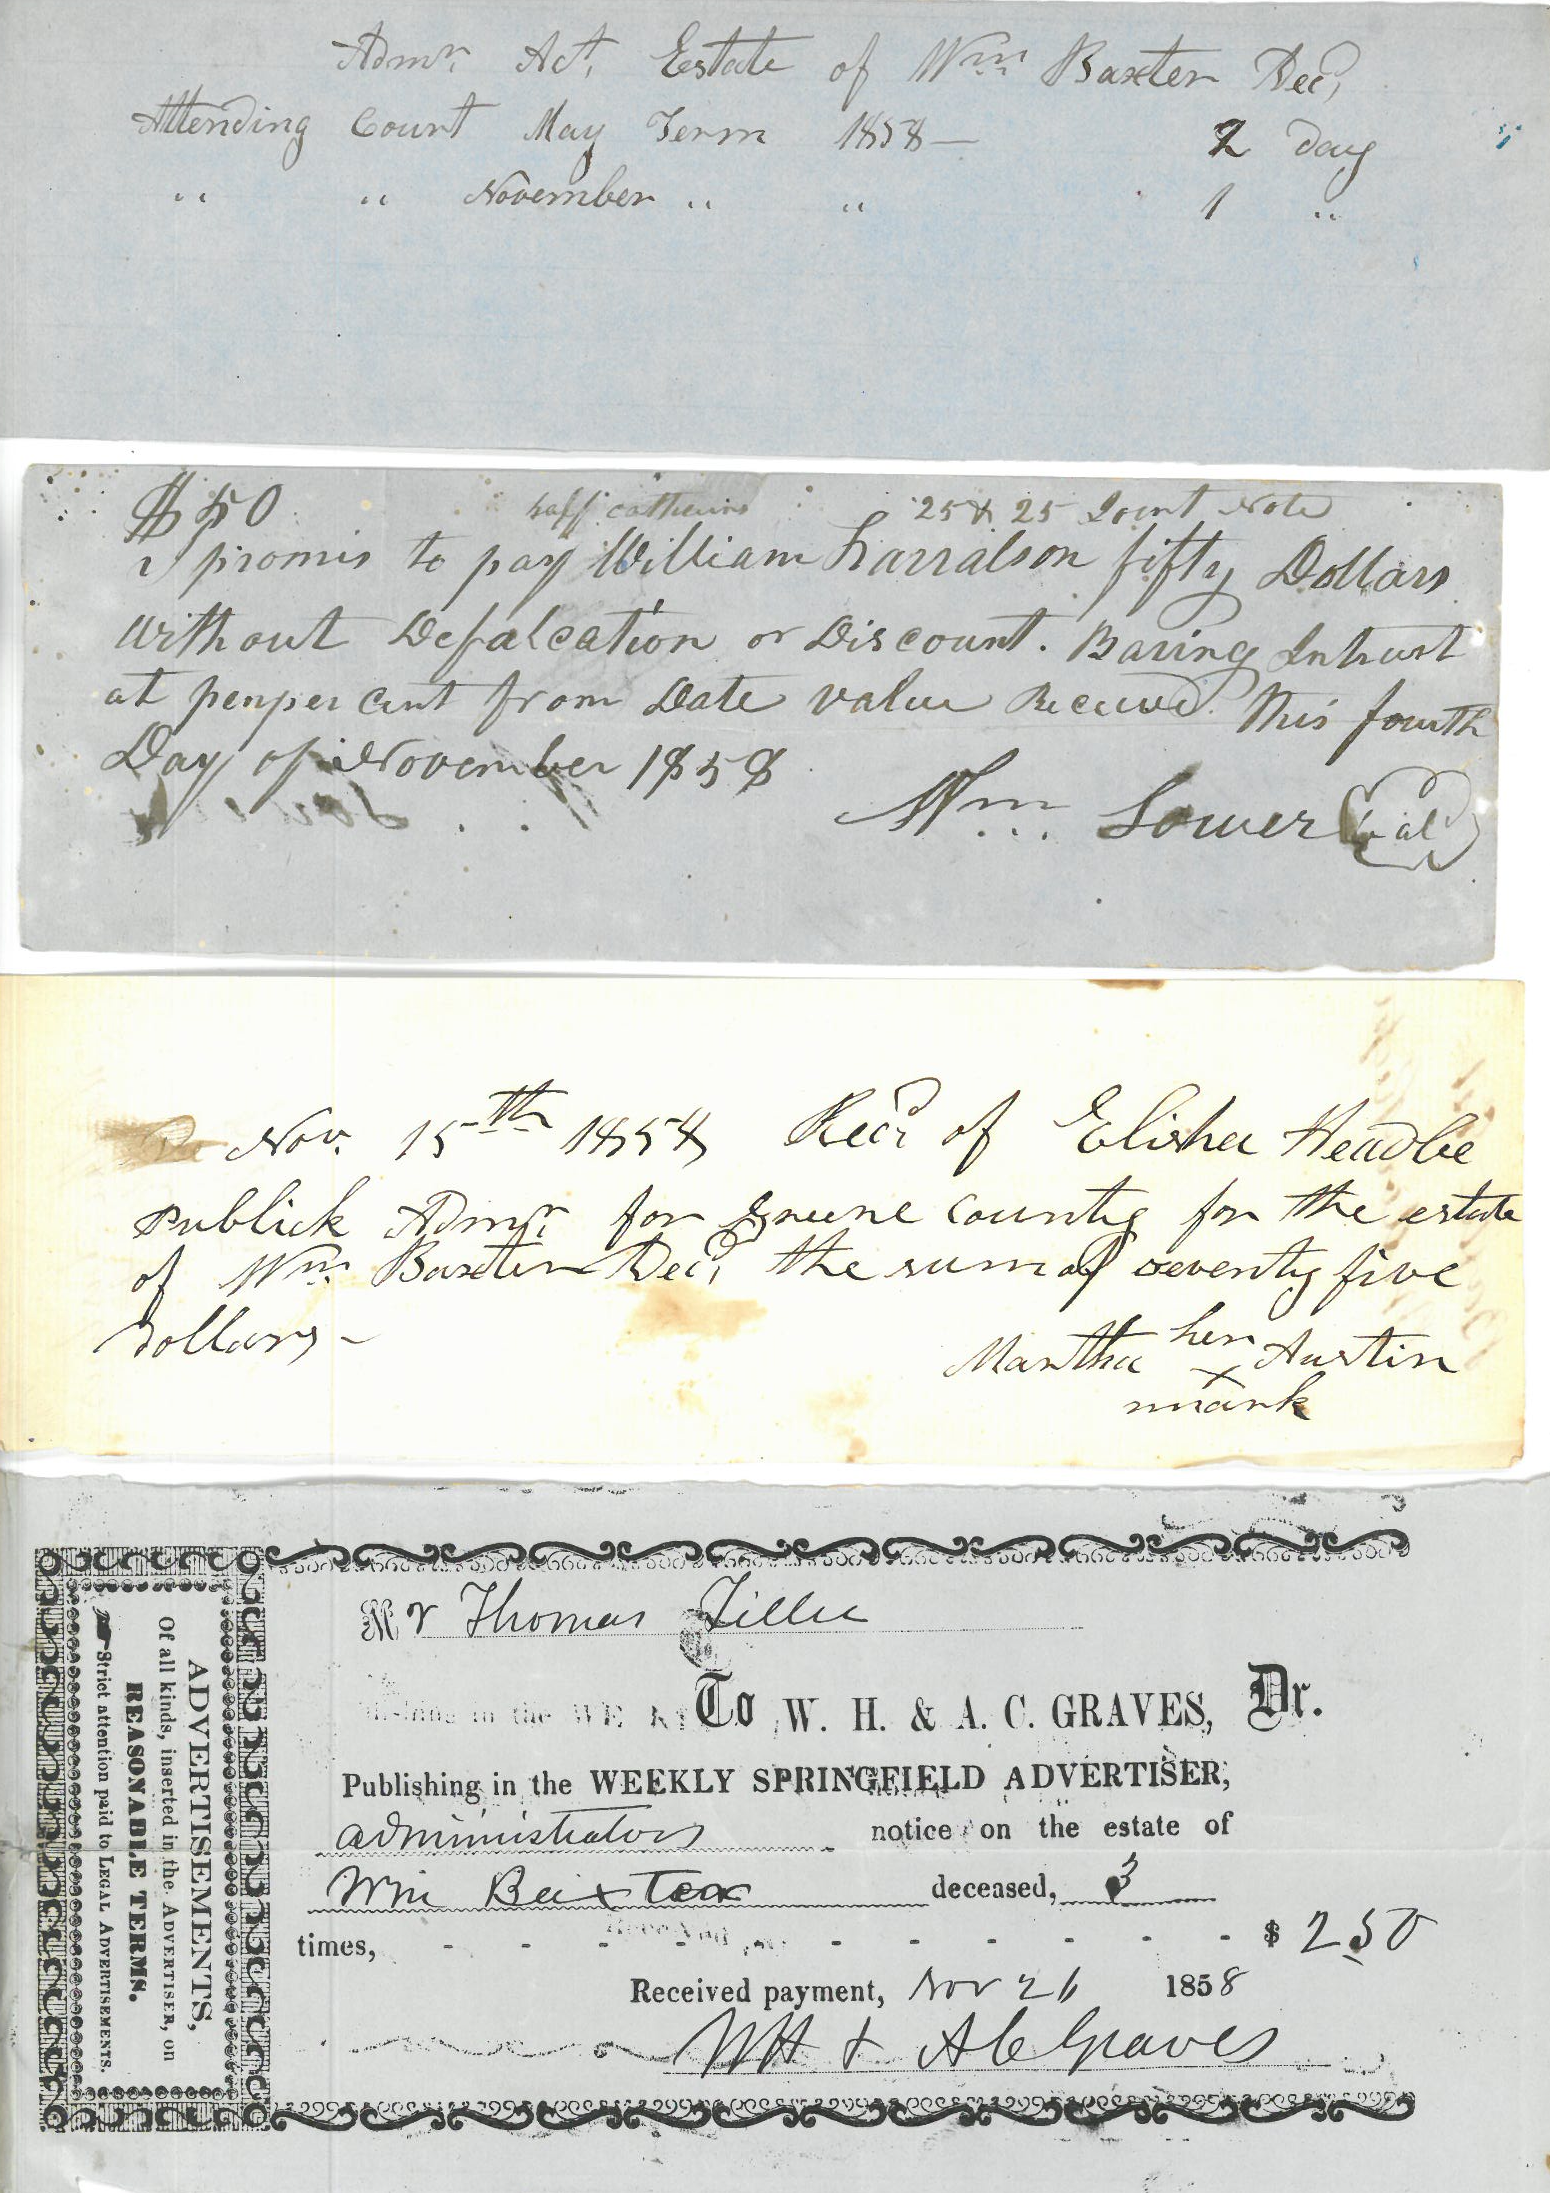 Admr. Act, Estate of Wm Baxter Decd,
Attending Court May Term 1858 — 2 day
" " November " " 1 "
$50 half catherine 25 & 25 Joint Note
I promis to pay William Harralson fifty Dollars
Without Defalcation or Discount. Baring Intrust
at per cent from Date value Received. This fourth
Day of November 1858
Wm Lower Seal
Nov. 15th 1858 Recd of Elisha Headlee
publick Admr. for Greene County for the estate
of Wm Baxter Decd, the sum of seventy five
Dollars —
Martha her Austin
x
mark
ADVERTISEMENTS,
Of all kinds, inserted in the ADVERTISER, on
REASONABLE TERMS.
Strict attention paid to LEGAL ADVERTISEMENTS.
Mr Thomas Tiller
To W. H. & A. C. GRAVES, Dr.
Publishing in the WEEKLY SPRINGFIELD ADVERTISER,
administrators notice on the estate of
Wm Baxter deceased, 3
times, - - - - - - - - - - - $ 2 50
Received payment, Nov 26 1858
WH & AC Graves